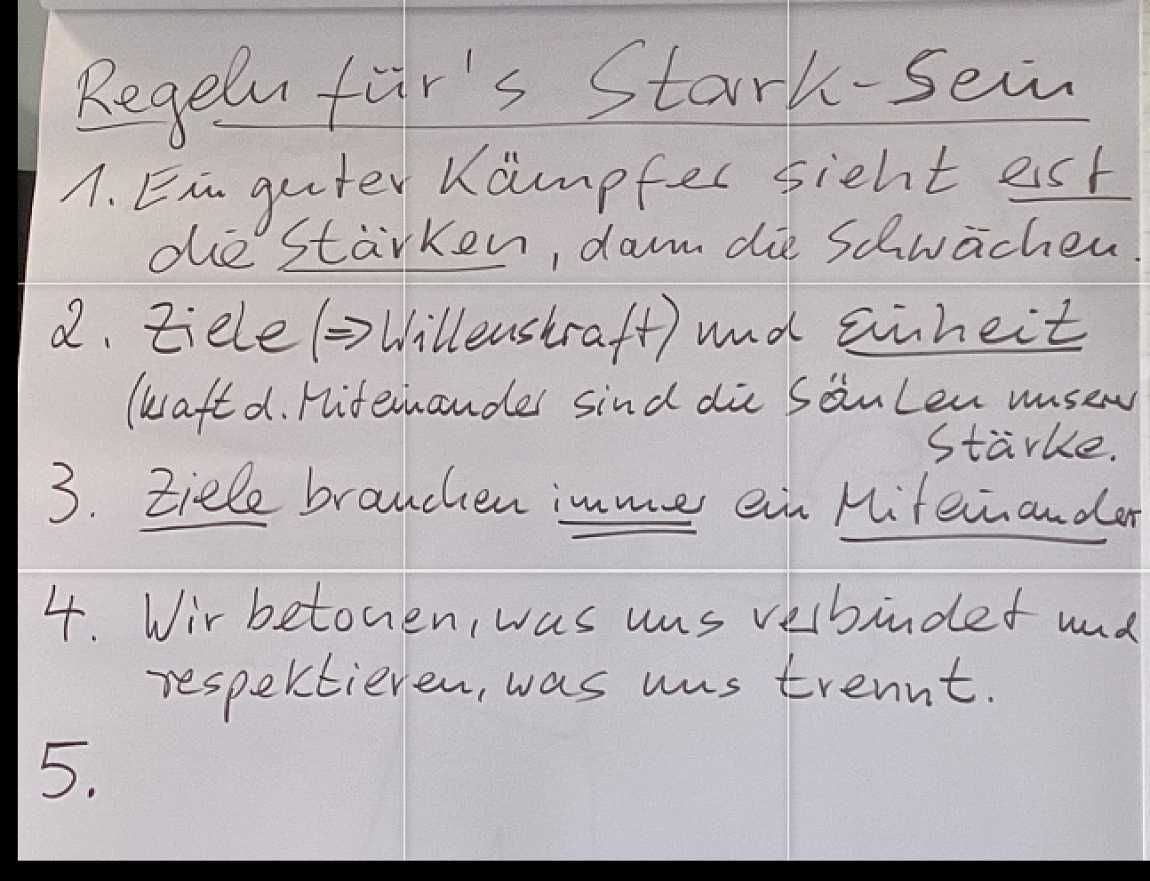 Regeln für's Stark-Sein
1. Ein guter Kämpfer sieht erst
die Stärken, dann die Schwächen.
2. Ziele (=> Willenskraft) und Einheit
(Kraft d. Miteinander sind die Säulen unserer
Stärke.
3. Ziele brauchen immer ein Miteinander
4. Wir betonen, was uns verbindet und
respektieren, was uns trennt.
5.